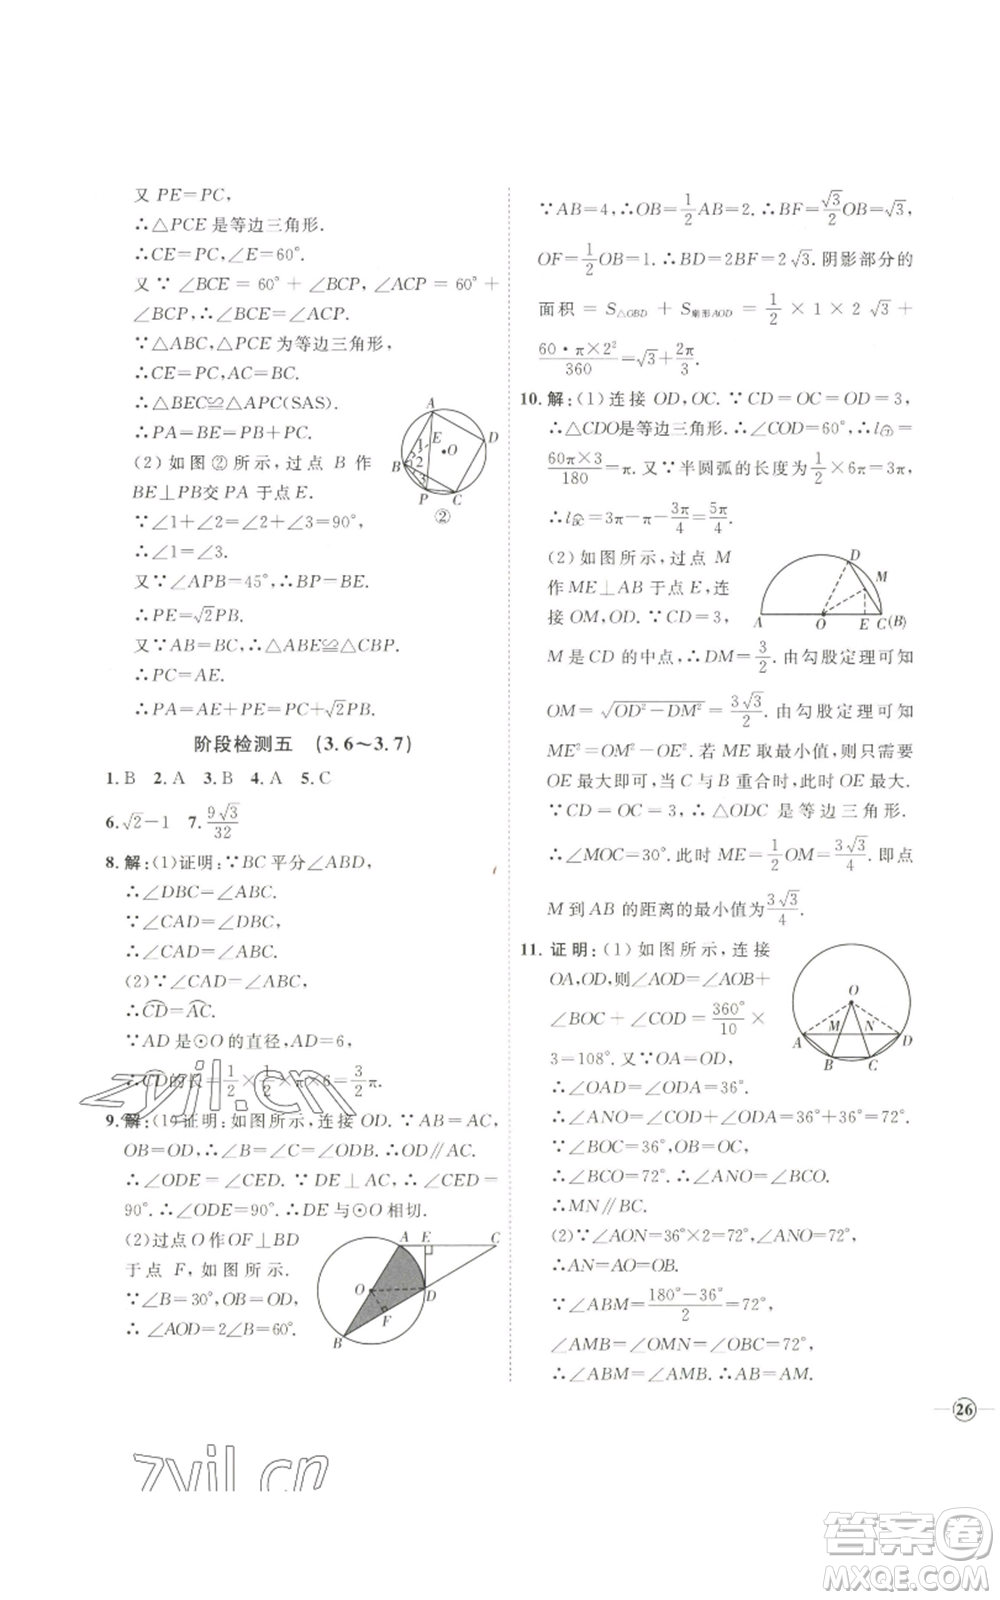 又 PE=PC,
∴△PCE是等边三角形.
∴CE=PC,∠E=60°.
又∵∠BCE=60°+∠BCP,∠ACP=60°+
∠BCP,∴∠BCE=∠ACP.
∵△ABC,△PCE为等边三角形,
∴CE=PC,AC=BC.
∴△BEC≌△APC(SAS).
∴PA=BE=PB+PC.
(2)如图②所示,过点 B 作
BE⊥PB交 PA 于点 E.
∵∠1+∠2=∠2+∠3=90°,
∴∠1=∠3.
又∵∠APB=45°,∴BP=BE.
∴PE=√2PB.
又∵AB=BC,∴△ABE≌△CBP.
∴PC=AE.
∴PA=AE+PE=PC+√2PB.
A
E
D
1
2
O
B
3
P
C
②
阶段检测五 (3.6~3.7)
1.B 2.A 3.B 4.A 5.C
6.√2-1 7.9√3/32
8.解:(1)证明:∵BC平分∠ABD,
∴∠DBC=∠ABC.
∵∠CAD=∠DBC,
∴∠CAD=∠ABC.
(2)∵∠CAD=∠ABC,
∴C͡D=A͡C.
∵AD是⊙O的直径,AD=6,
∴C͡D的长=1/2×1/2×π×6=3/2π.
9.解:(1)证明:如图所示,连接OD.∵AB=AC,
OB=OD,∴∠B=∠C=∠ODB.∴OD∥AC.
∴∠ODE=∠CED.∵DE⊥AC,∴∠CED=
90°.∴∠ODE=90°.∴DE与⊙O相切.
(2)过点O作OF⊥BD
于点 F,如图所示.
∵∠B=30°,OB=OD,
∴∠AOD=2∠B=60°.
A E C
O
D
F
B
∵AB=4,∴OB=1/2AB=2.∴BF=√3/2OB=√3,
OF=1/2OB=1.∴BD=2BF=2√3.阴影部分的
面积=S△OBD+S扇形AOD=1/2×1×2√3+
60·π×2²/360=√3+2π/3.
10.解:(1)连接OD,OC.∵CD=OC=OD=3,
∴△CDO是等边三角形.∴∠COD=60°,∴l=
60π×3/180=π.又∵半圆弧的长度为1/2×6π=3π,
∴l=3π-π-3π/4=5π/4.
(2)如图所示,过点 M
作ME⊥AB于点E,连
接OM,OD.∵CD=3,
M是CD的中点,∴DM=3/2.由勾股定理可知
OM=√(OD²-DM²)=3√3/2.由勾股定理可知
ME²=OM²-OE².若 ME 取最小值,只需要
OE最大即可,当C与B重合时,此时OE最大.
∵CD=OC=3,∴△ODC是等边三角形.
∴∠MOC=30°.此时ME=1/2OM=3√3/4.即点
M到AB的距离的最小值为3√3/4.
D
M
A O E C(B)
11.证明:(1)如图所示,连接
OA,OD,则∠AOD=∠AOB+
∠BOC+∠COD=360°/10×
3=108°.又∵OA=OD,
∴∠OAD=∠ODA=36°.
∴∠ANO=∠COD+∠ODA=36°+36°=72°.
∵∠BOC=36°,OB=OC,
∴∠BCO=72°.∴∠ANO=∠BCO=72°.
∴MN∥BC.
(2)∵∠AON=36°×2=72°,∠ANO=72°,
∴∠AON=∠ANO.∴AN=AO=OB.
∵∠ABM=180°-36°/2=72°,
∠AMB=∠OMN=∠OBC=72°,
∴∠ABM=∠AMB.∴AB=AM.
O
A M N D
B C
26
zyjl.cn
zyjl.cn
答案圈
MXQE.COM